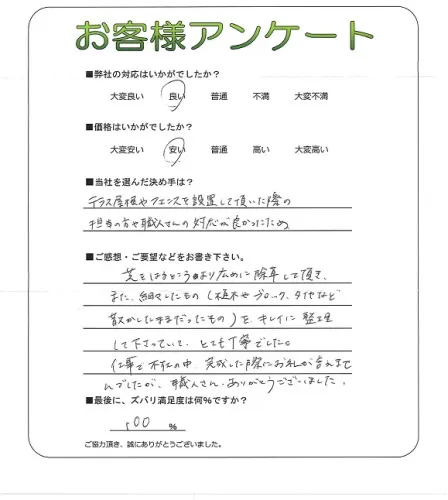 お客様アンケート
■弊社の対応はいかがでしたか?
大変良い 良い 普通 不満 大変不満
■価格はいかがでしたか?
大変安い 安い 普通 高い 大変高い
■当社を選んだ決め手は?
テラス屋根やフェンスを設置して頂いた際の
担当の方や職人さんの対応が良かったため
■ご感想・ご要望などをお書き下さい。
芝をはるところより広めに除草して頂き、
また、細々したもの(植木やブロック、タイヤなど
散かしたままだったもの)を、キレイに整理
して下さっていて、とても丁寧でした。
仕事で不在の中、完成した際にお礼が言えませ
んでしたが、職人さん、ありがとうございました。
■最後に、ズバリ満足度は何%ですか?
100 %
ご協力頂き、誠にありがとうございました。